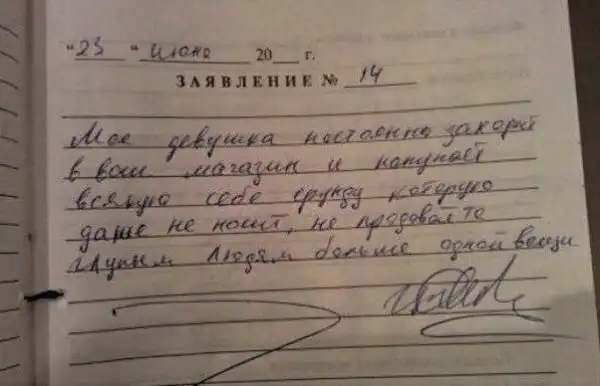 "23" июня 20__ г.
ЗАЯВЛЕНИЕ № 14
Моя девушка постоянно заходит
в ваш магазин и покупает
всякую себе ерунду которую
даже не носит, не продовайте
глупым людям больше одной вещи